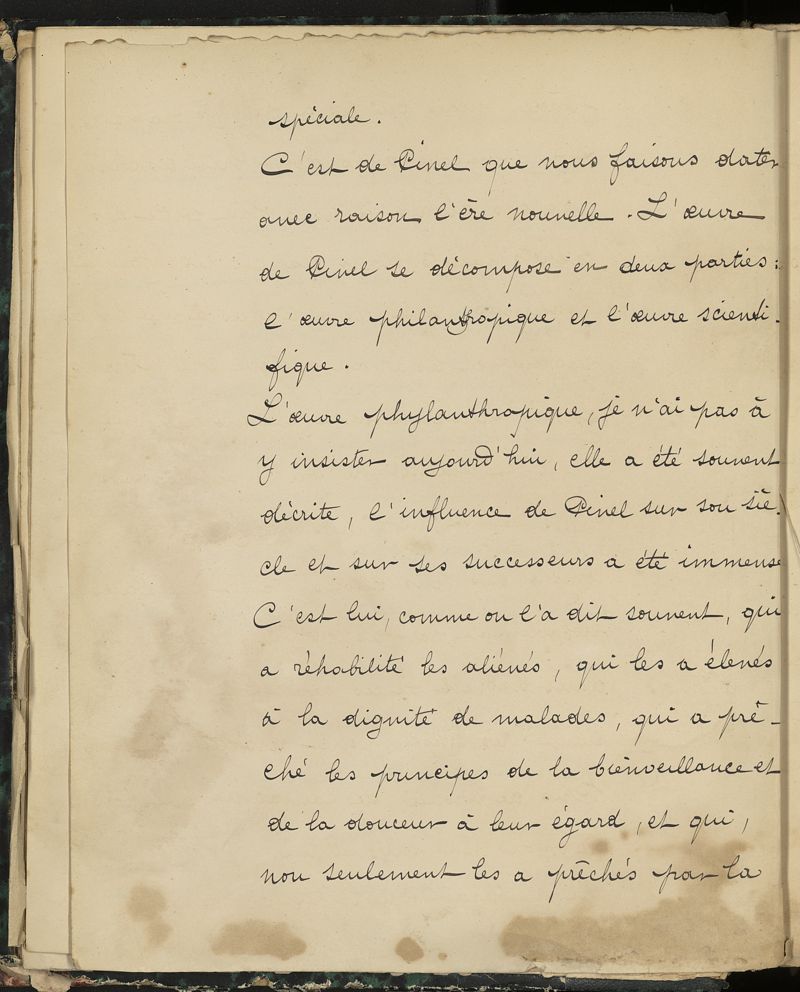 spéciale.
C'est de Pinel que nous faisons dater
avec raison l'ère nouvelle. L'œuvre
de Pinel se décompose en deux parties:
l'œuvre philanthropique et l'œuvre scienti-
fique.
L'œuvre phylanthropique, je n'ai pas à
y insister aujourd'hui, elle a été souvent
décrite, l'influence de Pinel sur son siè-
cle et sur ses successeurs a été immense
C'est lui, comme on l'a dit souvent, qui
a réhabilité les aliénés, qui les a élevés
à la dignité de malades, qui a prê-
ché les principes de la bienveillance et
de la douceur à leur égard, et qui,
non seulement les a prêchés par la